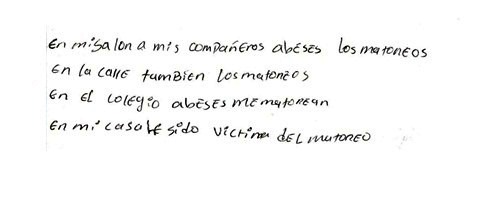 En mi salon a mis compañeros abeses los matoneos
En la calle tambien los matoneos
En el colegio abeses me matonean
En mi casa he sido victima del matoneo